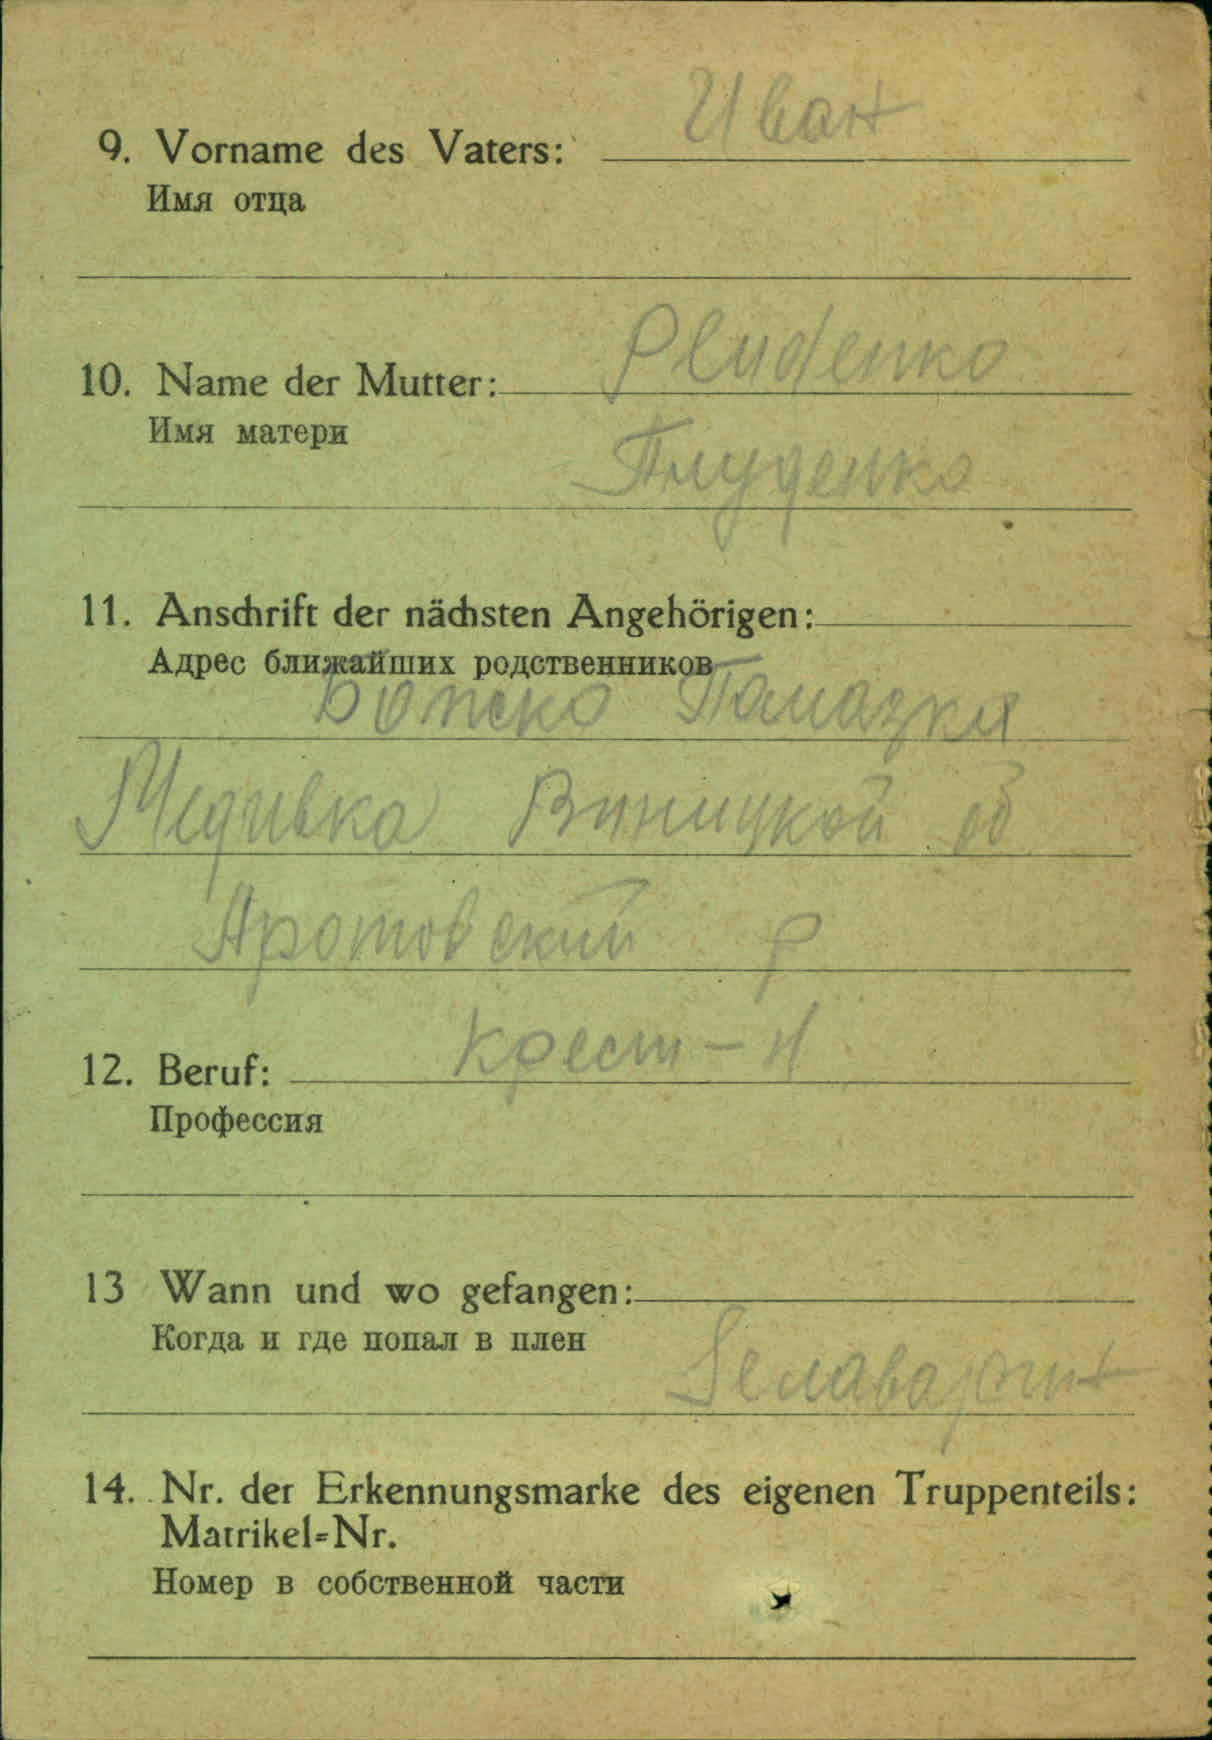 Иван
9. Vorname des Vaters:
Имя отца
Pludenko
10. Name der Mutter:
Имя матери
Плуденко
11. Anschrift der nächsten Angehörigen:
Адрес ближайших родственников
Медивка Виницкой об
р
Крест-н
12. Beruf:
Профессия
13 Wann und wo gefangen:
Когда и где попал в плен
14. Nr. der Erkennungsmarke des eigenen Truppenteils:
Matrikel=Nr.
Номер в собственной части